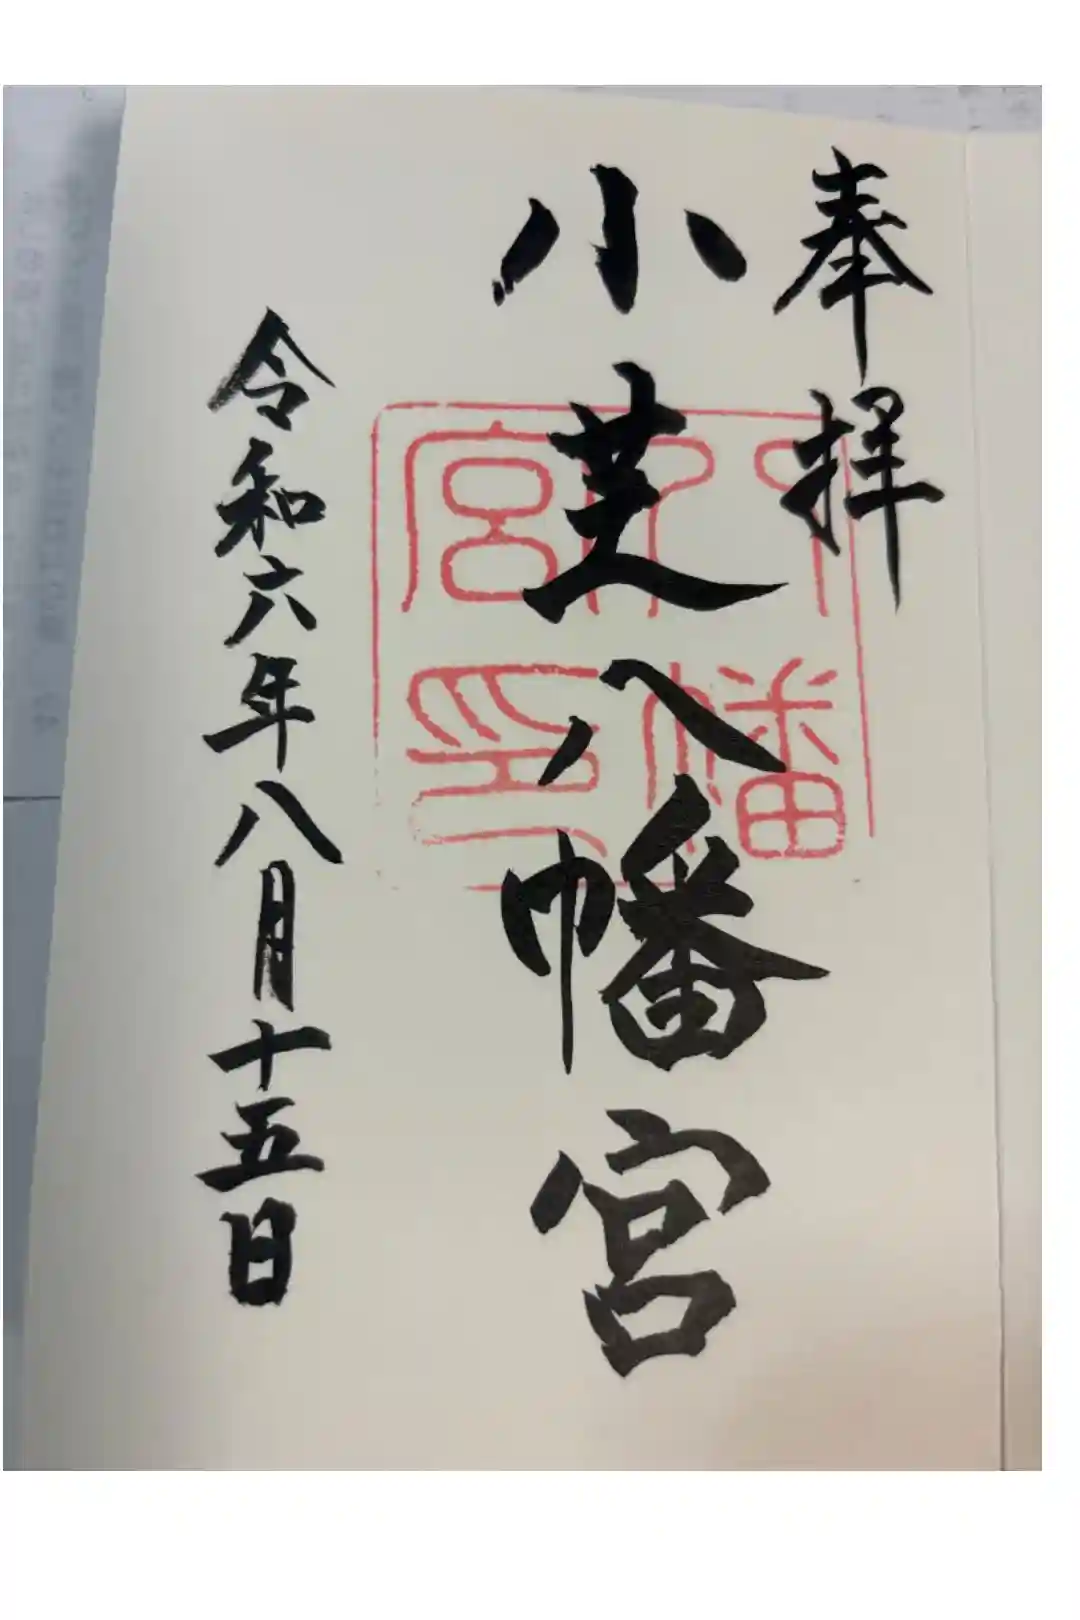 奉拝
小芝八幡宮
八幡宮印
令和六年八月十五日